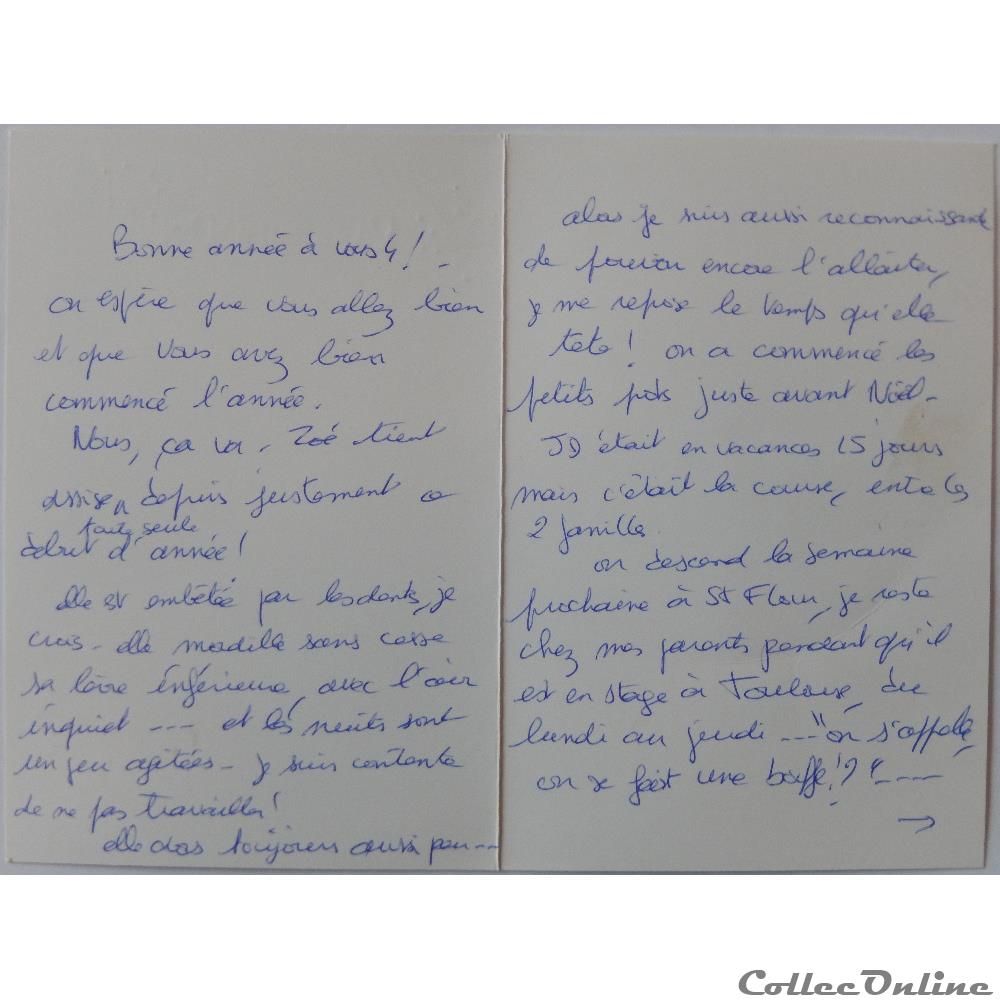 Bonne année à vous 4 ! -
on espère que vous allez bien
et que vous avez bien
commencé l'année.
Nous, ça va. Zoé tient
assise, depuis justement ce
toute seule
début d'année !
elle est embêtée par les dents, je
crois - elle mordille sans cesse
sa lèvre inférieure, avec l'air
inquiet --- et les nuits sont
un peu agitées - je suis contente
de ne pas travailler !
elle dors toujours aussi peu ---
alors je suis aussi reconnaissante
de pouvoir encore l'allaiter,
je me repose le temps qu'elle
tête ! on a commencé les
petits pots juste avant Noël -
JD était en vacances 15 jours
mais c'était la course, entre les
2 familles.
on descend la semaine
prochaine à St Flour, je reste
chez mes parents pendant qu'il
est en stage à Toulouse, du
lundi au jeudi --- "on s'appelle,
on se fait une bouffe !?" ----
→
CollecOnline